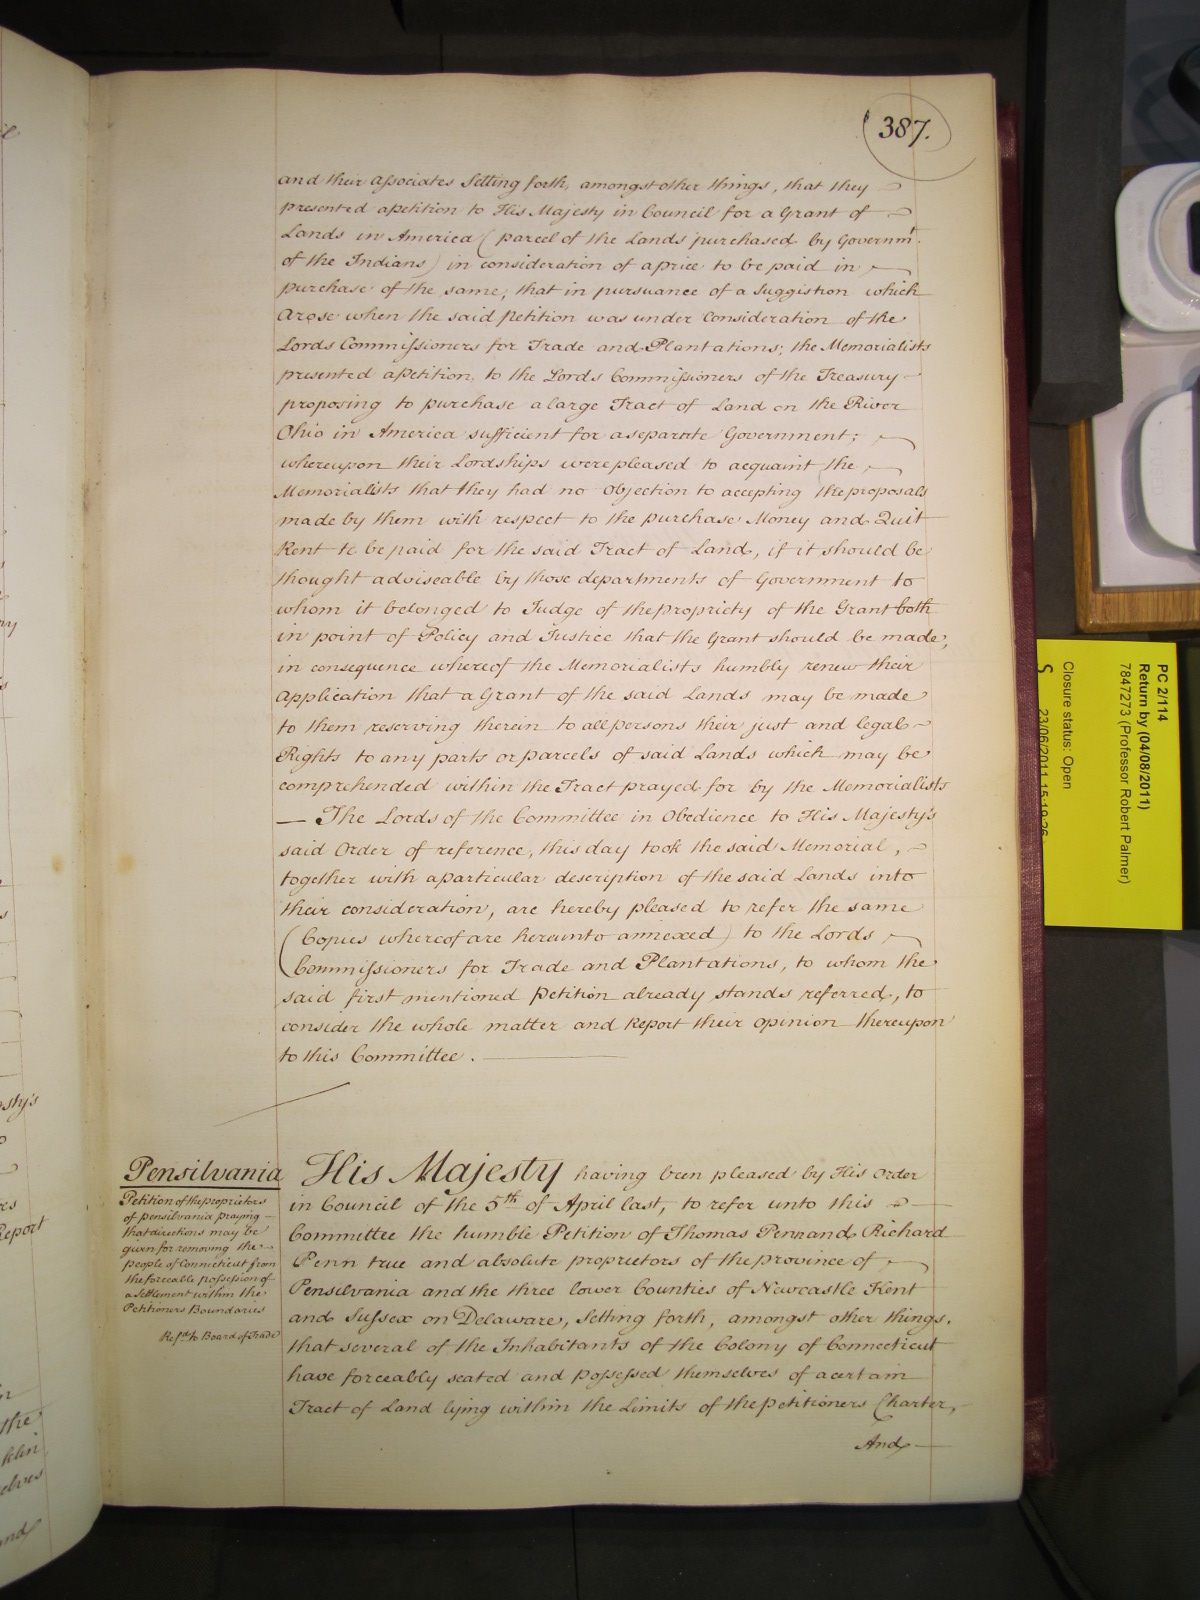 387.
and their associates Setting forth, amongst other things, that they
presented a petition to His Majesty in Council for a Grant of
Lands in America (parcel of the Lands purchased by Governmt.
of the Indians) in consideration of a price to be paid in
purchase of the same; that in pursuance of a Suggistion which
Arose when the said Petition was under Consideration of the
Lords Commissioners for Trade and Plantations; the Memorialists
presented a Petition to the Lords Commissioners of the Treasury
proposing to purchase a large Tract of Land on the River
Ohio in America sufficient for a separate Government;
whereupon their Lordships were pleased to acquaint the
Memorialists that they had no Objection to accepting the proposals
made by them with respect to the purchase Money and Quit
Rent to be paid for the said Tract of Land, if it should be
thought adviseable by those departments of Government to
whom it belonged to Judge of the propriety of the Grant both
in point of Policy and Justice that the Grant should be made;
in consequence whereof the Memorialists humbly renew their
Application that a Grant of the said Lands may be made
to them reserving therein to all persons their just and legal
Rights to any parts or parcels of said Lands which may be
comprehended within the Tract prayed for by the Memorialists
— The Lords of the Committee in Obedience to His Majesty's
said Order of reference, this day took the said Memorial,
together with a particular description of the said Lands into
their consideration, are hereby pleased to refer the same
(Copies whereof are hereunto annexed) to the Lords
Commissioners for Trade and Plantations, to whom the
said first mentioned Petition already stands referred, to
consider the whole matter and Report their Opinion thereupon
to this Committee.
Pensilvania
Petition of the proprietors
of Pensilvania praying
that directions may be
given for removing the
people of Connecticut from
the forceable possession of
a Settlement within the
Petitioners Boundaries
Ref.d to Board of Trade
His Majesty having been pleased by His Order
in Council of the 5th of April last, to refer unto this
Committee the humble Petition of Thomas Penn and Richard
Penn true and absolute proprietors of the province of
Pensilvania and the three lower Counties of Newcastle Kent
and Sussex on Delaware, Setting forth, amongst other things,
that several of the Inhabitants of the Colony of Connecticut
have forceably seated and possessed themselves of a certain
Tract of Land lying within the Limits of the Petitioners Charter,
And
PC 2/114
Return by (04/08/2011)
7847273 (Professor Robert Palmer)
Closure status: Open
23/06/2011 15:19:26
S